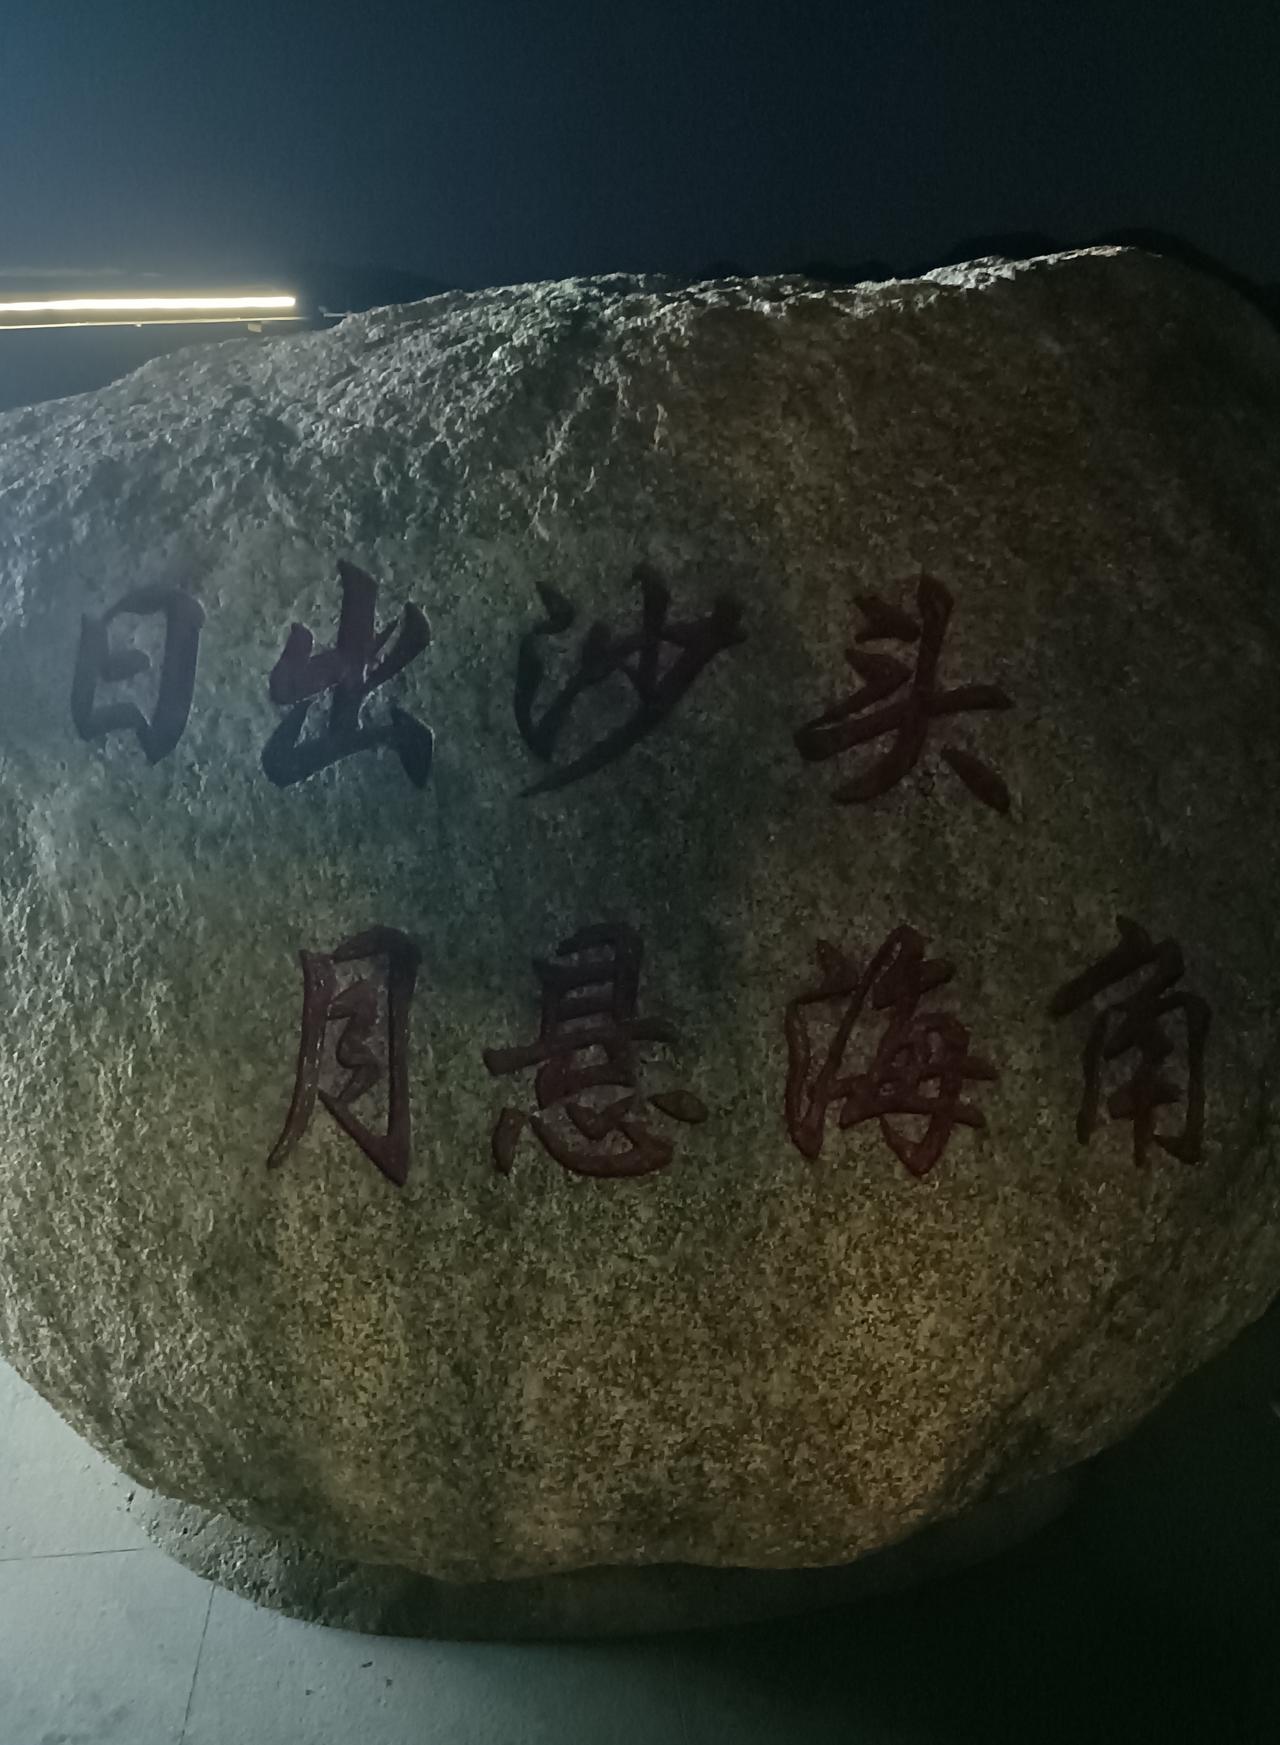 日出沙头
月悬海角